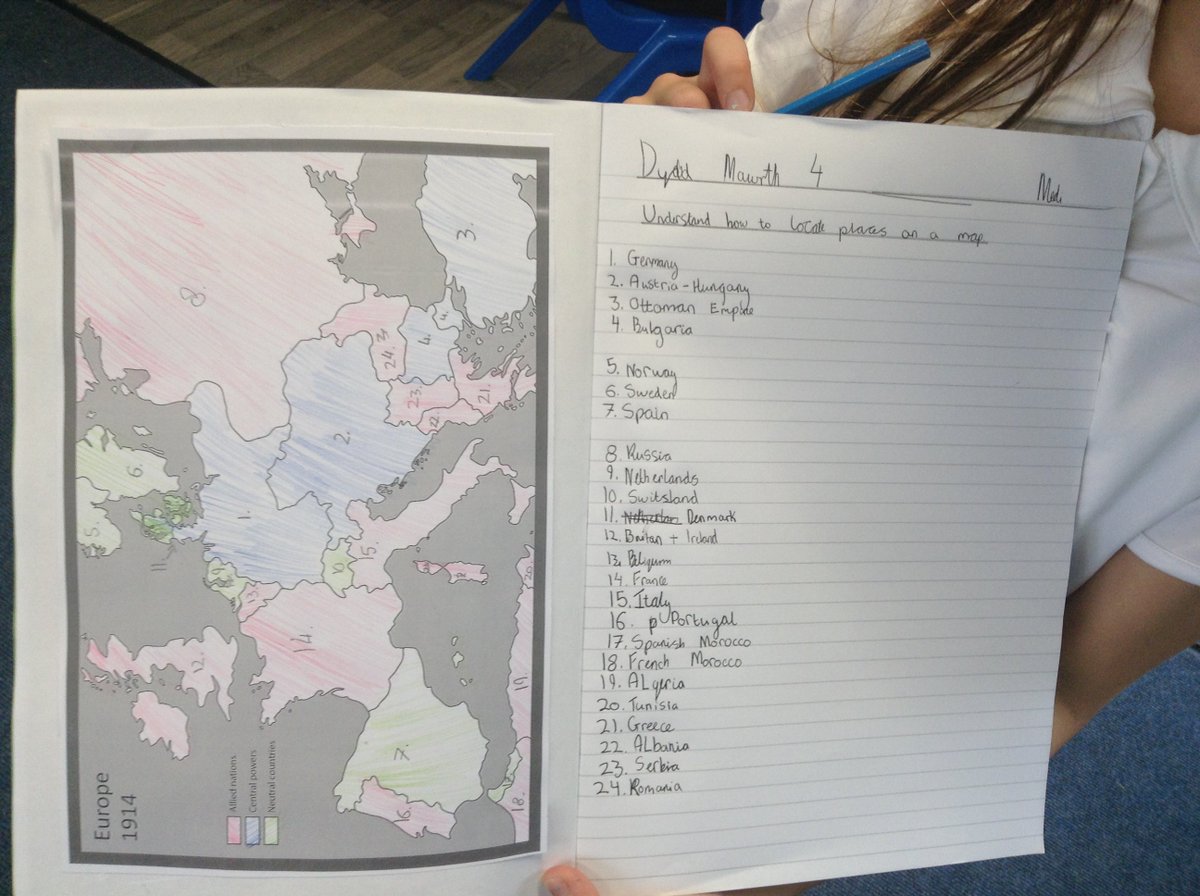 Europe
1914
Allied nations
Central powers
Neutral countries
8.
3.
3.
24.
4.
4.
23
22
21.
2.
6.
5.
11.
1.
9
10
15.
13.
14.
12.
7.
16.
17.
18.
19.
20.
Dydd Mawrth 4 Medi
Understand how to locate places on a map
1. Germany
2. Austria-Hungary
3. Ottoman Empire
4. Bulgaria
5. Norway
6. Sweden
7. Spain
8. Russia
9. Netherlands
10. Switsland
11. Denmark
12. Britan + Ireland
13. Beligum
14. France
15. Italy
16. Portugal
17. Spanish Morocco
18. French Morocco
19. ALgeria
20. Tunisia
21. Greece
22. ALbania
23. Serbia
24. Romania